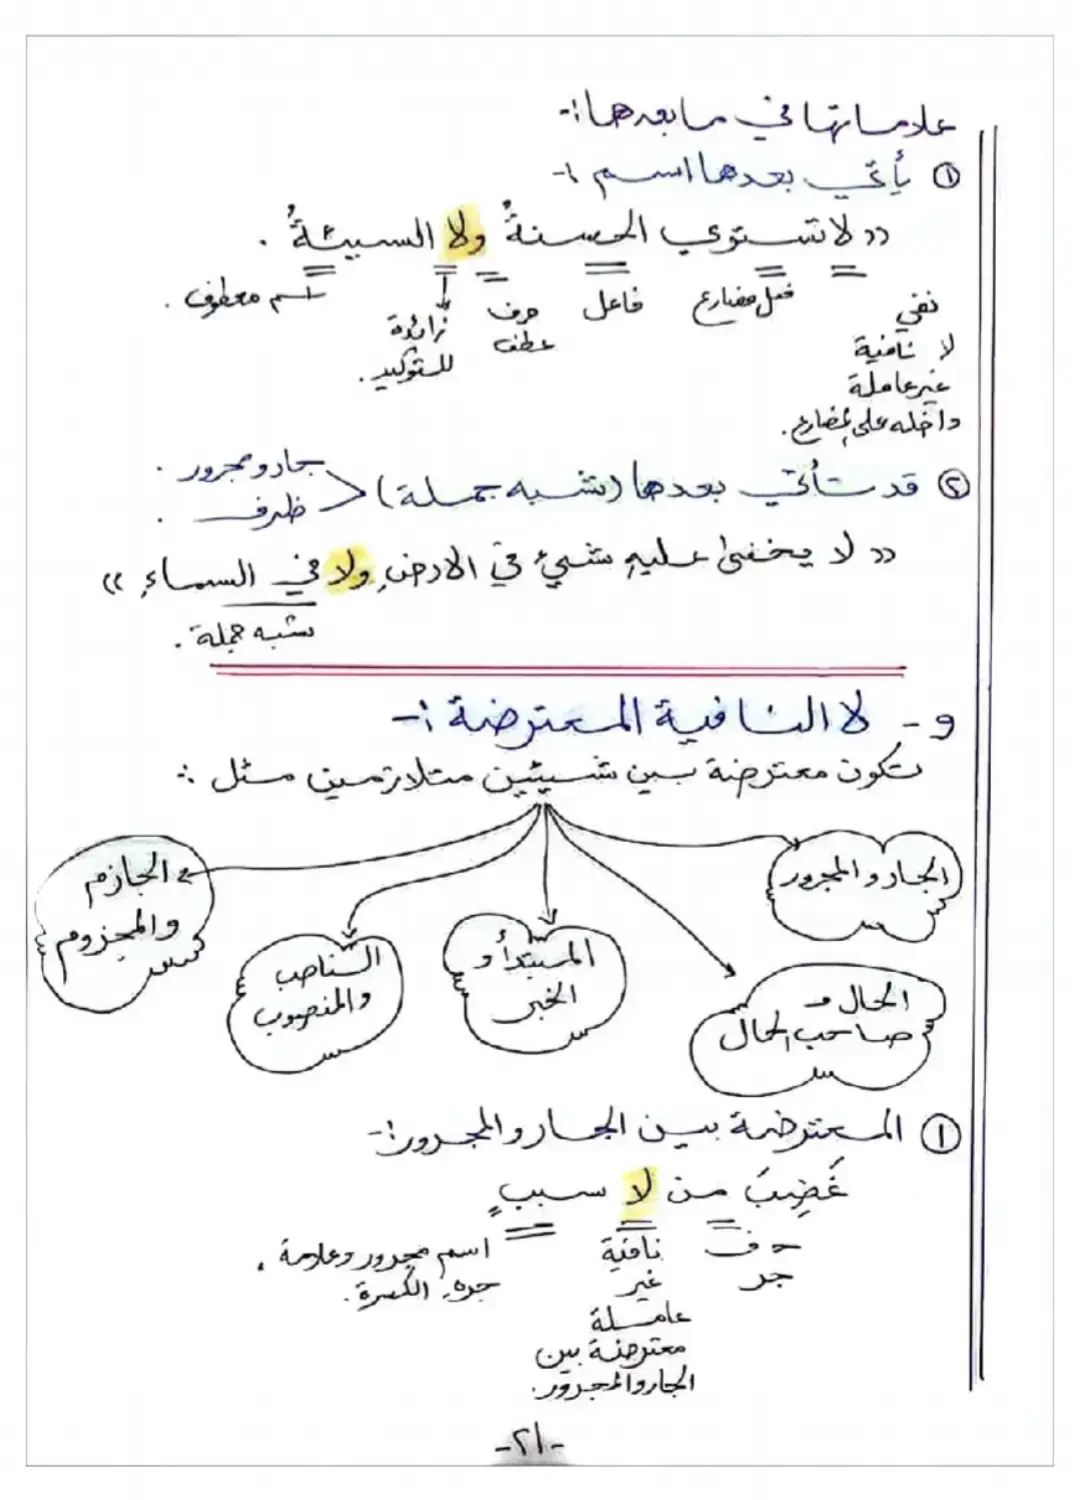 علاماتها في ما بعدها :-
① يأتي بعدها اسم :-
« لا تستوي الحسنةُ ولا السيئةُ .
نفي
لا نافية
غير عاملة
داخله على المضارع.
فعل مضارع
فاعل
حرف
عطف
زائدة
للتوكيد .
اسم معطوف .
② قد ستأتي بعدها (شبه جملة) < جار ومجرور .
ظرف .
« لا يخفىٰ عليهِ شيءٌ في الارضِ ولا في السماءِ »
شبه جملة .
و - لا النافية المعترضة :-
تكون معترضة بين شيئين متلازمين مثل :-
الجار والمجرور
الحال و
صاحب الحال
المبتدأ و
الخبر
الناصب
والمنصوب
الجازم
والمجزوم
① المعترضة بين الجار والمجرور :-
غَضِبَ من لا سببٍ
حرف
جر
نافية
غير
عاملة
معترضة بين
الجار والمجرور.
اسم مجرور وعلامة
جرهِ الكسرة .
-٢١-